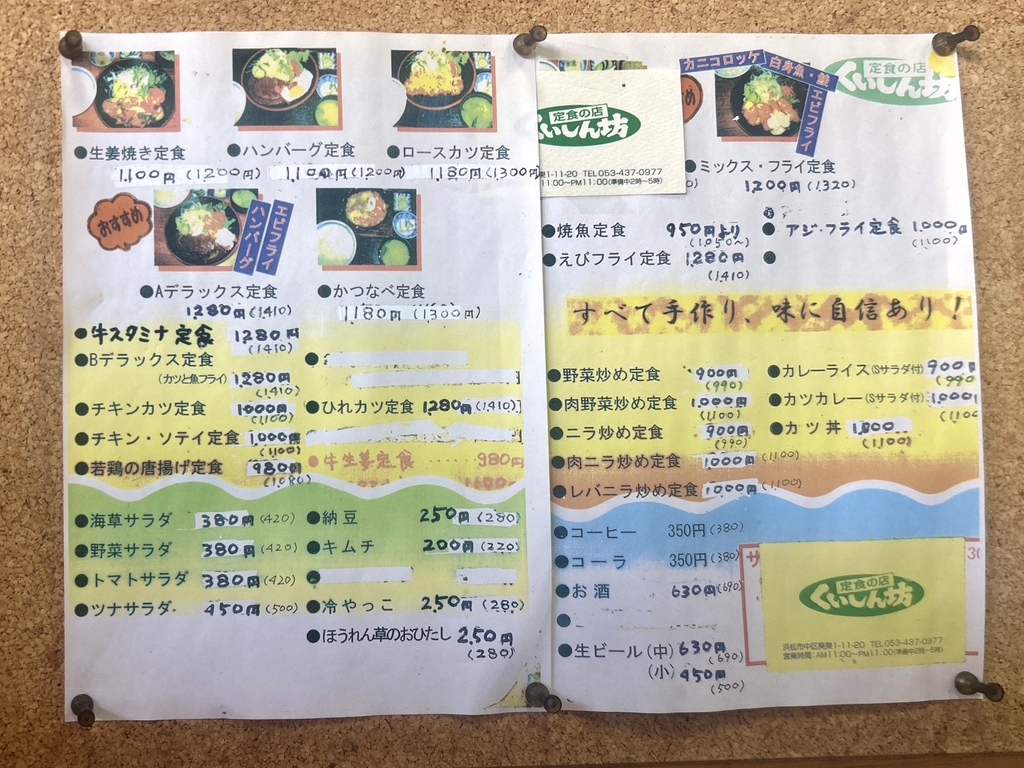 ●生姜焼き定食
1,100円(1200円)
●ハンバーグ定食
1,100円(1200円)
●ロースカツ定食
1,180円(1300円)
おすすめ
エビフライ
ハンバーグ
●Aデラックス定食
1280円(1410)
●かつなべ定食
1180円(1300円)
●牛スタミナ定食 1280円
(1410)
●Bデラックス定食
(カツと魚フライ) 1,280円
(1,410)
●チキンカツ定食 1000円
(1,100)
●ひれカツ定食 1,280円(1,410)
●チキン・ソテイ定食 1,000円
(1100)
●若鶏の唐揚げ定食 980円
(1,080)
●牛生姜定食 980円
●海草サラダ 380円(420)
●野菜サラダ 380円(420)
●トマトサラダ 380円(420)
●ツナサラダ 450円(500)
●納豆 250円(280)
●キムチ 200円(220)
●冷やっこ 250円(280)
●ほうれん草のおひたし 250円
(280)
定食の店
くいしん坊
東1-11-20 TEL053-437-0977
11:00〜PM11:00(準備中2時〜5時)
カニコロッケ 白身魚・鮭
エビフライ
定食の店
くいしん坊
●ミックス・フライ定食
1,200円(1,320)
●焼魚定食 950円より
(1,050〜)
●アジ・フライ定食 1,000円
(1,100)
●えびフライ定食 1,280円
(1410)
すべて手作り、味に自信あり!
●野菜炒め定食 900円
(990)
●肉野菜炒め定食 1,000円
(1,100)
●ニラ炒め定食 900円
(990)
●肉ニラ炒め定食 1000円(1,100)
●レバニラ炒め定食 1000円(1,100)
●カレーライス(Sサラダ付) 900円
(990)
●カツカレー(Sサラダ付) 1,000
(1,100)
●カツ丼 1,000
(1,100)
●コーヒー 350円(380)
●コーラ 350円(380)
●お酒 630円(690)
●生ビール(中) 630円
(690)
(小) 450円
(500)
定食の店
くいしん坊
浜松市中区葵東1-11-20 TEL053-437-0977
営業時間:AM11:00〜PM11:00(準備中2時〜5時)